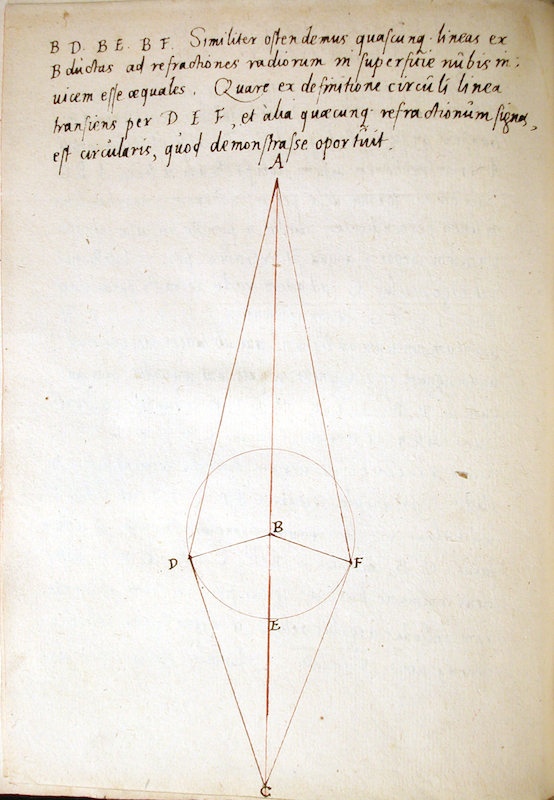 B D. B E. B F. Similiter ostendemus quascunq. lineas ex
B ductas ad refractiones radiorum in superficie nubis in:
uicem esse æquales. Quare ex definitione circuli linea
transiens per D E F, et alia quæcunq. refractionum signa,
est circularis, quod demonstrasse oportuit.
A
B
D
F
E
C